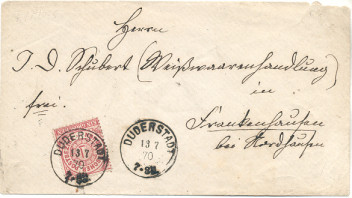 Herrn
J. D. Schubert (Weißwaarenhandlung)
in
frei.
Frankenhausen
bei Nordhausen
DUDERSTADT
13 7
70
7-8N.
DUDERSTADT
13 7
70
7-8N.